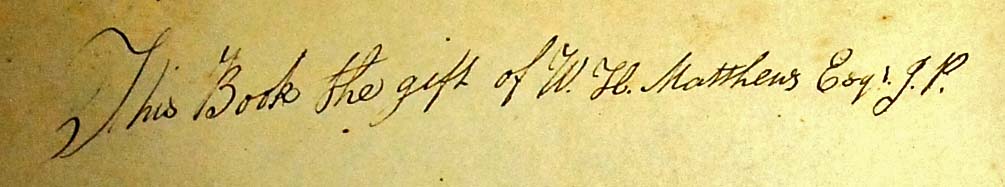 This Book the gift of W. H. Matthews Esqr. J. P.